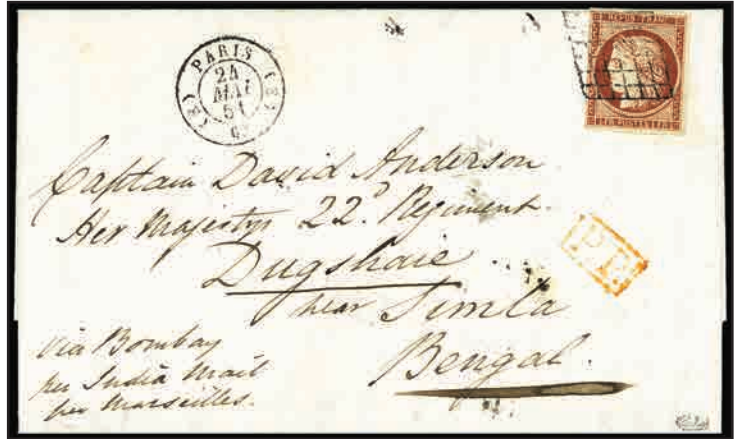 PARIS
24
MAI
51
REPUB. FRANC.
1 FR. POSTES 1 FR.
Captain David Anderson
Her Majestys 22d Regiment
Dugshaie
near Simla
Bengal.
P.P.
via Bombay
per India Mail
via Marseilles.